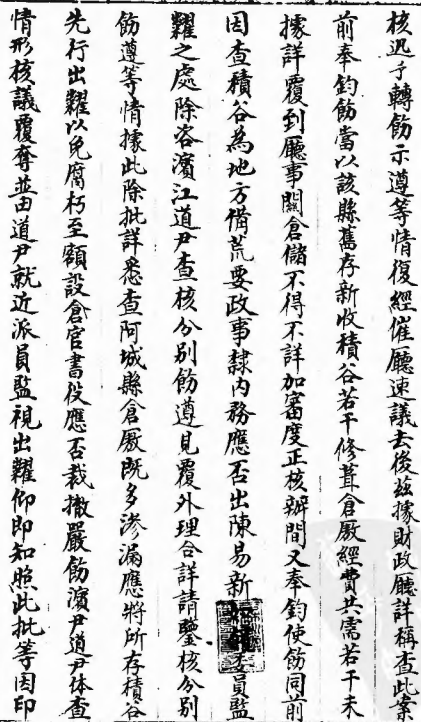 核迅予轉飭示遵等情復經催廳速議去後兹據財政廳詳稱查此案
前奉鈞飭當以該縣舊存新收積谷若干修葺倉厫經費共需若干未
據詳覆到廳事關倉儲不得不詳加審度正核辦間又奉鈞使飭同前
因查積谷為地方備荒要政事隸内務應否出陳易新委員監
糶之處除咨濱江道尹查核分别飭遵見覆外理合詳請鑒核分别
飭遵等情據此除批詳悉查阿城縣倉厫既多滲漏應將所存積谷
先行出糶以免腐朽至額設倉官書役應否裁撤嚴飭濱尹道尹体查
情形核議覆奪並由道尹就近派員監視出糶仰即知照此批等因印